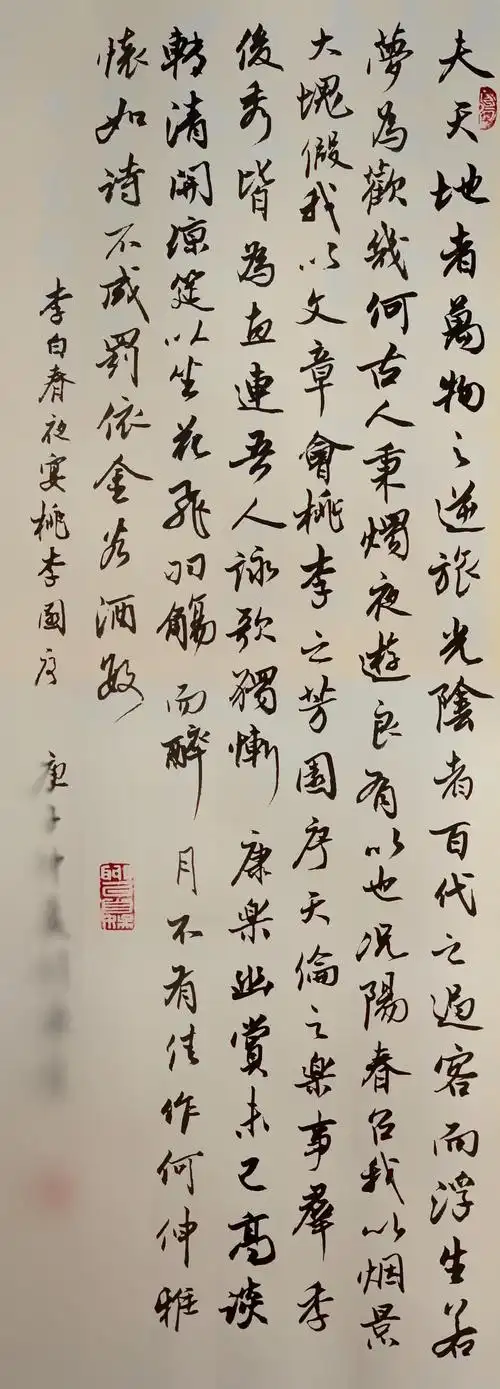 夫天地者萬物之逆旅光陰者百代之過客而浮生若
夢為歡幾何古人秉燭夜遊良有以也況陽春召我以烟景
大塊假我以文章會桃李之芳園序天倫之樂事羣季
俊秀皆為惠連吾人詠歌獨慚康樂幽賞未已高談
轉清開瓊筵以坐花飛羽觴而醉月不有佳作何伸雅
懷如詩不成罰依金谷酒數
李白春夜宴桃李園序
庚子